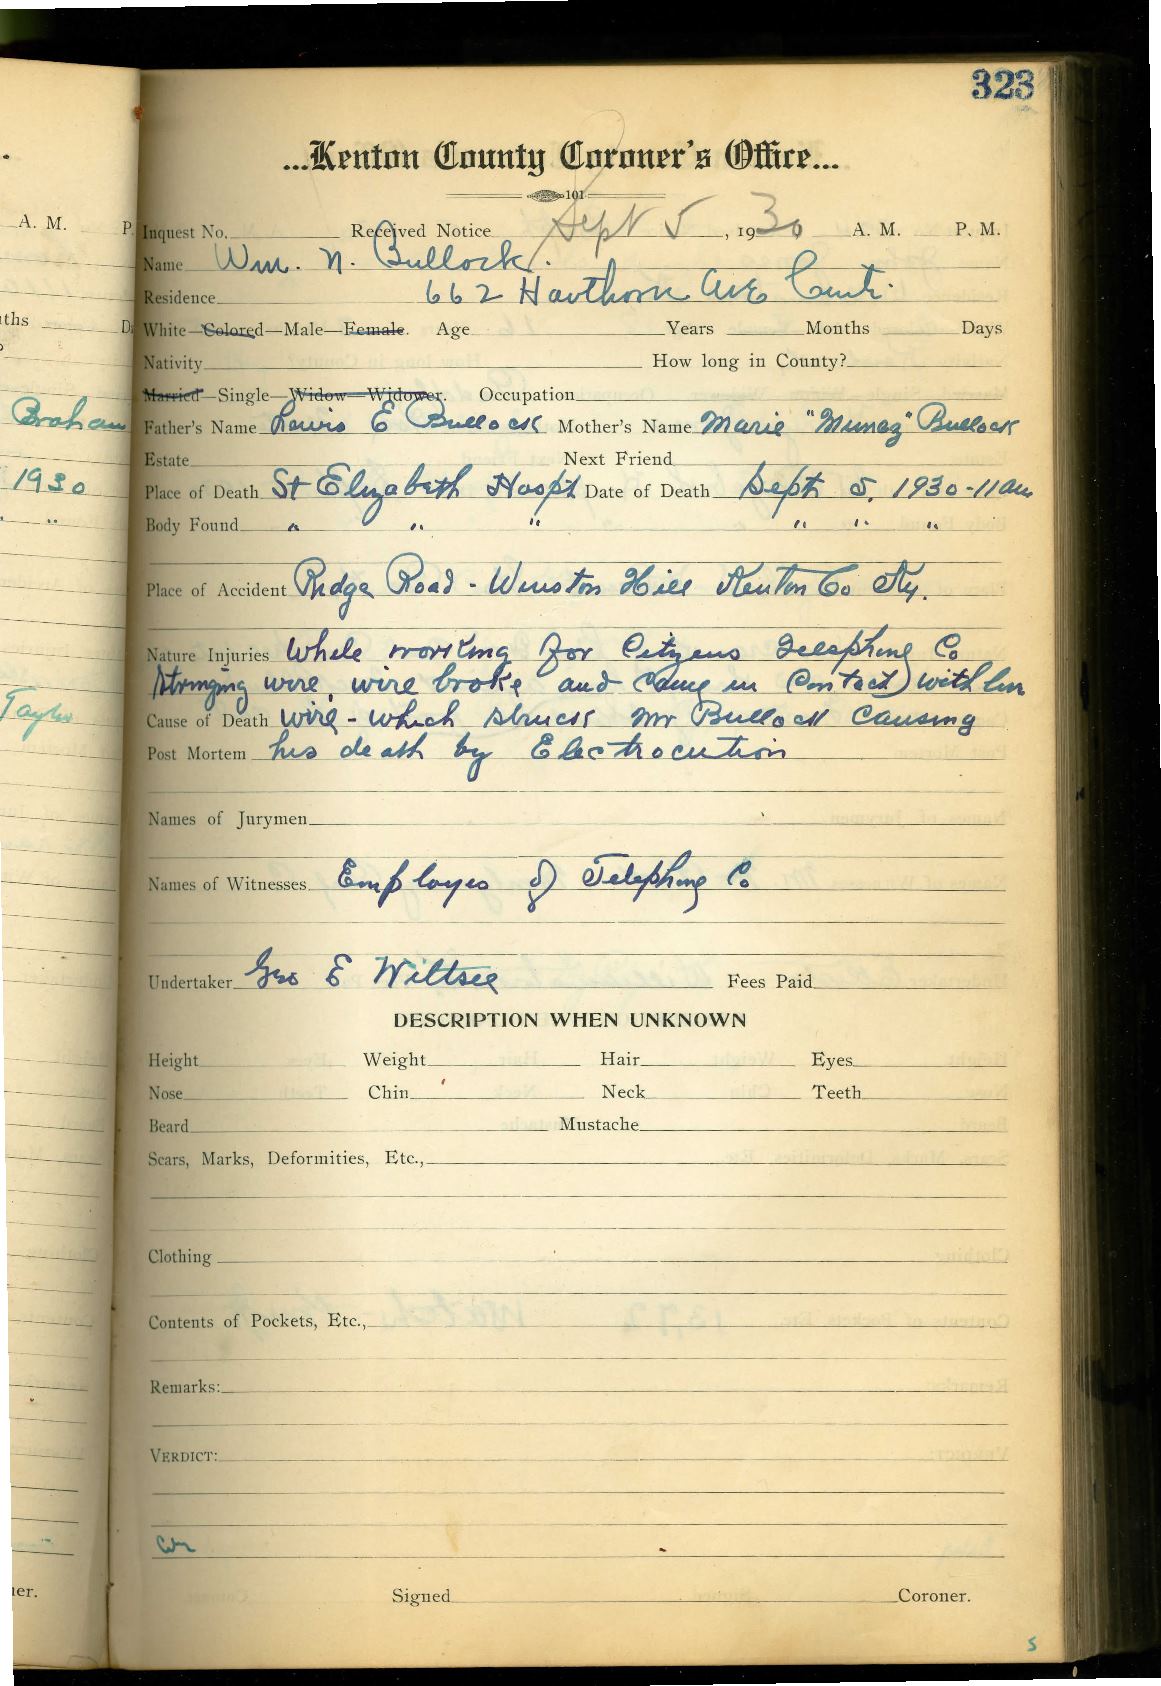 323
...Kenton County Coroner's Office...
101
Inquest No. Received Notice Sept 5, 1930 A. M. P. M.
Name Wm. N. Bullock.
Residence 662 Hawthorn Ave Cinti.
White—Colored—Male—Female. Age Years Months Days
Nativity How long in County?
Married—Single—Widow—Widower. Occupation
Father's Name Lewis E Bullock Mother's Name Marie "Munaz" Bullock
Estate Next Friend
Place of Death St Elizabeth Hospt Date of Death Sept 5, 1930-11am
Body Found " " " " " "
Place of Accident Ridge Road - Winston Hill Kenton Co Ky.
Nature Injuries While working for Citizens Telephone Co
Stringing wire, wire broke and came in Contact with live
Cause of Death wire - which struck Mr Bullock causing
Post Mortem his death by Electrocution
Names of Jurymen
Names of Witnesses Employes of Telephone Co
Undertaker Geo E Wiltsee Fees Paid
DESCRIPTION WHEN UNKNOWN
Height Weight Hair Eyes
Nose Chin Neck Teeth
Beard Mustache
Scars, Marks, Deformities, Etc.,
Clothing
Contents of Pockets, Etc.,
Remarks:
VERDICT:
Signed Coroner.
S
A. M. P.
ths D
Braham
1930
" "
Taylor
ner.